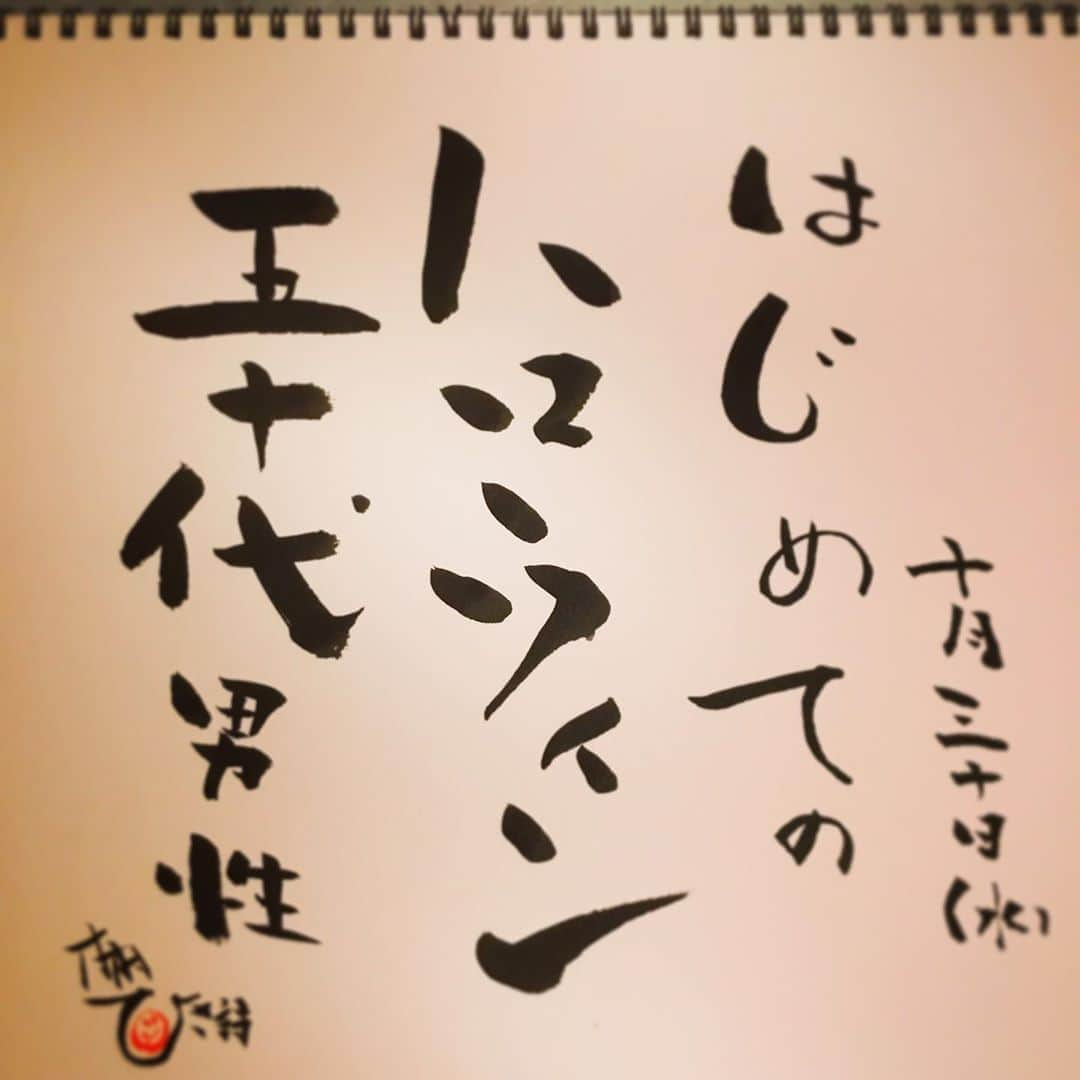 十月三十日(水)
はじめての
ハロウィン
五十代男性